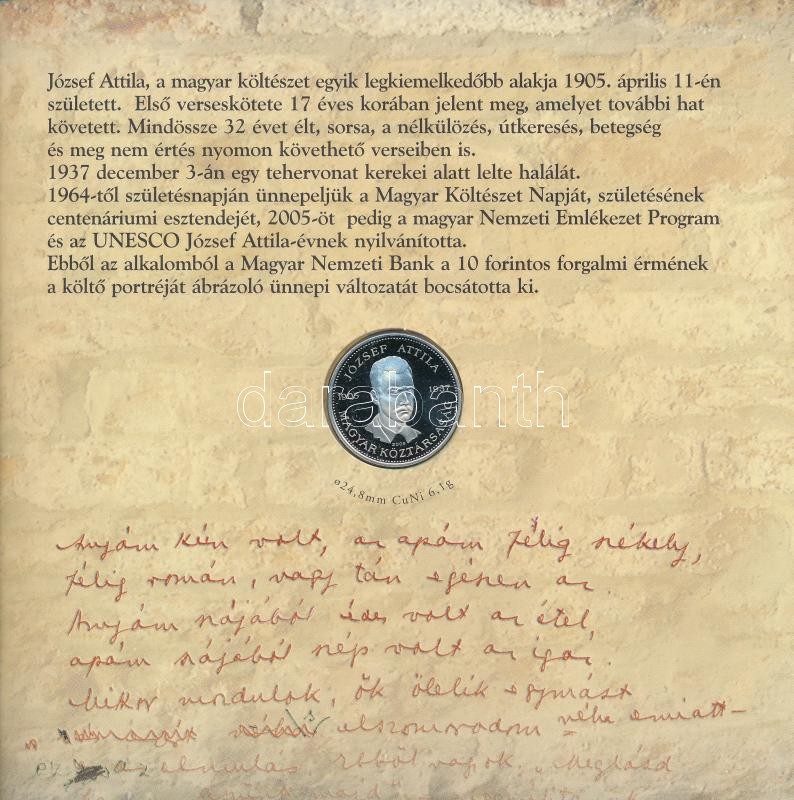 József Attila, a magyar költészet egyik legkiemelkedőbb alakja 1905. április 11-én
született. Első verseskötete 17 éves korában jelent meg, amelyet további hat
követett. Mindössze 32 évet élt, sorsa, a nélkülözés, útkeresés, betegség
és meg nem értés nyomon követhető verseiben is.
1937 december 3-án egy tehervonat kerekei alatt lelte halálát.
1964-től születésnapján ünnepeljük a Magyar Költészet Napját, születésének
centenáriumi esztendejét, 2005-öt pedig a magyar Nemzeti Emlékezet Program
és az UNESCO József Attila-évnek nyilvánította.
Ebből az alkalomból a Magyar Nemzeti Bank a 10 forintos forgalmi érmének
a költő portréját ábrázoló ünnepi változatát bocsátotta ki.
JÓZSEF ATTILA
1905 1937
darabanth
MAGYAR KÖZTÁRSASÁG
2005
ø24,8mm CuNi 6,1g
Anyám kún volt, az apám félig székely,
félig román, vagy tán egészen az.
Anyám szájából édes volt az étel,
apám szájából szép volt az igaz.
Mikor mozdulok, ők ölelik egymást
elszomorodom néha emiatt-
ez az elmulás. Ebből vagyok. „Meglásd